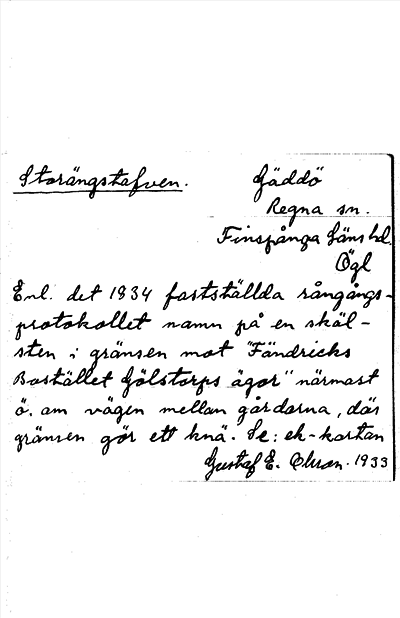 Storängstafven.
Gäddö
Regna sn.
Finspånga läns hd.
Ögl
Enl. det 1834 fastställda rångångs-
protokollet namn på en skäl-
sten i gränsen mot "Fändricks
Bostället Gölstorps ägor" närmast
ö. om vägen mellan gårdarna, där
gränsen gör ett knä. Se: ek-kartan
Gustaf E. Olsson. 1933